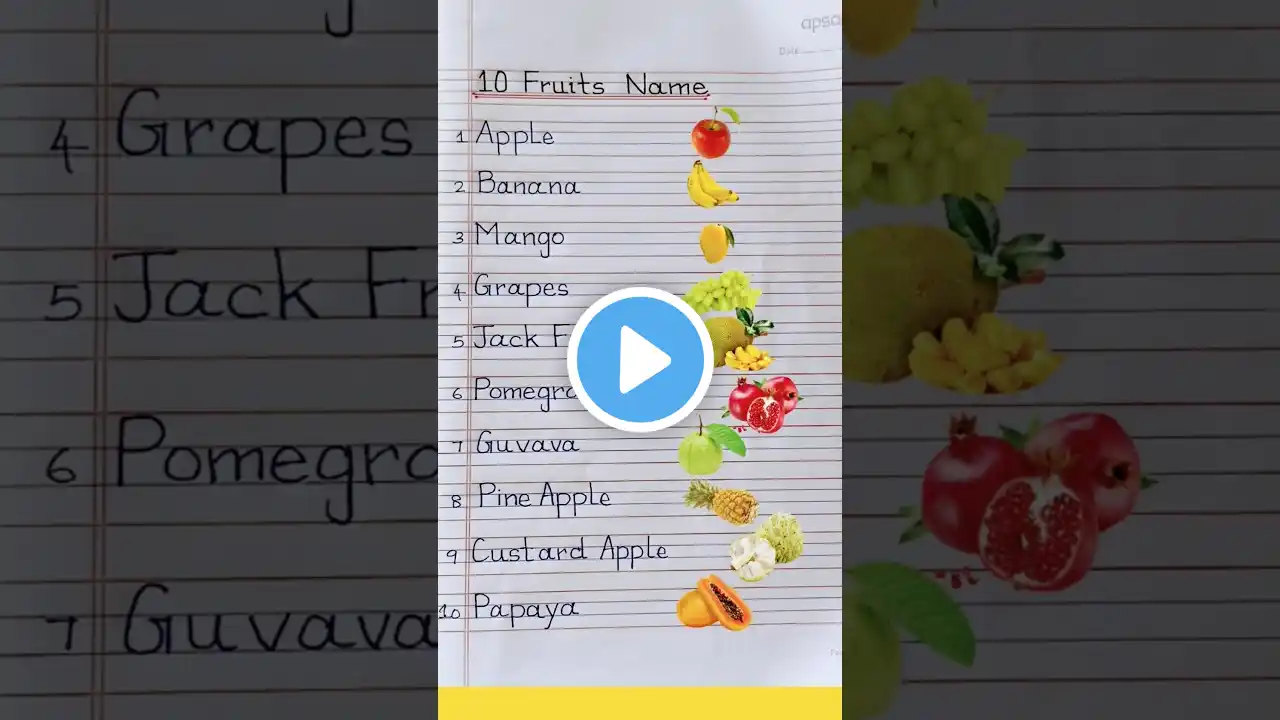 apsa
Date
10 Fruits Name
1 Apple
2 Banana
3 Mango
4 Grapes
5 Jack F
6 Pomegra
7 Guvava
8 Pine Apple
9 Custard Apple
10 Papaya
4 Grapes
5 Jack Fr
6 Pomegra
7 Guvava